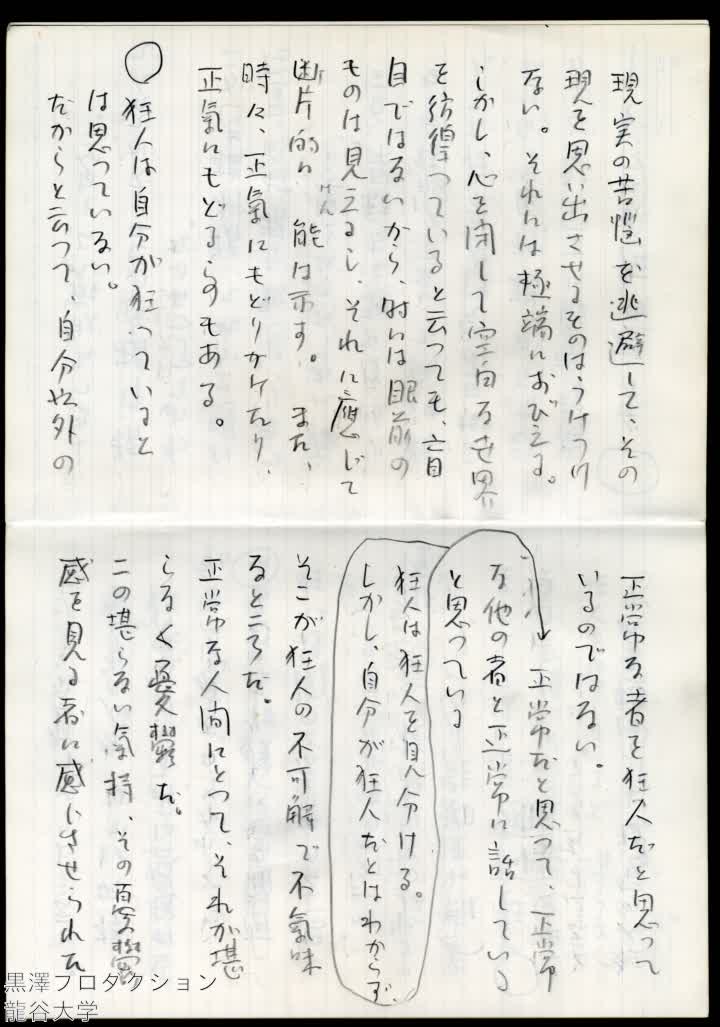 現実の苦悩を逃避して、その
現を思い出させるものはうけつけ
ない。それには極端におびえる。
しかし、心を閉して空白な世界
を彷徨っていると云っても、盲
目ではないから、時には眼前の
ものは見えるし、それに應じて
断片的に 能は示す。 また、
時々、正氣にもどりかけたり、
正氣にもどるのもある。
○ 狂人は自分が狂っていると
は思っていない。
だからと云って、自分以外の
正常な者を狂人だと思って
いるのではない。
正常だと思って、正常
な他の者と正常に話している
と思っている
狂人は狂人を見分ける。
しかし、自分が狂人だとはわからず、
そこが狂人の不可解で不氣味
なところだ。
正常な人間にとって、それが堪
らなく憂鬱だ。
この堪らない気持、その憂鬱
感を見る者に感じさせられた
黒澤プロダクション
龍谷大学